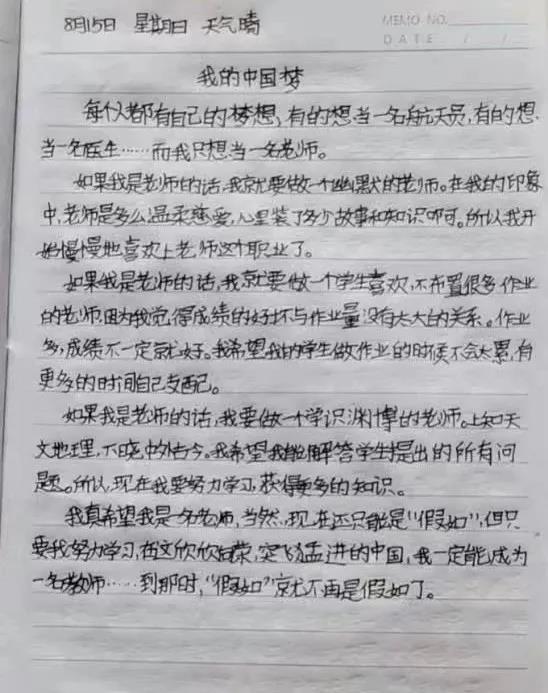 8月15日 星期日 天气晴
MEMO NO.
DATE / /
我的中国梦
每个人都有自己的梦想,有的想当一名航天员,有的想
当一名医生……而我只想当一名老师。
如果我是老师的话,我就要做一个幽默的老师。在我的印象
中,老师是多么温柔慈爱,心里装了多少故事和知识呀。所以我开
始慢慢地喜欢上老师这个职业了。
如果我是老师的话,我就要做一个学生喜欢,不布置很多作业
的老师,因为我觉得成绩的好坏与作业量没有太大的关系。作业
多,成绩不一定就好。我希望我的学生做作业的时候不会太累,有
更多的时间自己支配。
如果我是老师的话,我要做一个学识渊博的老师。上知天
文地理,下晓中外古今。我希望我能解答学生提出的所有问
题。所以,现在我要努力学习,获得更多的知识。
我真希望我是一名老师,当然,现在还只能是“假如”,但只
要我努力学习,在这欣欣向荣,突飞猛进的中国,我一定能成为
一名教师……到那时,“假如”就不再是假如了。